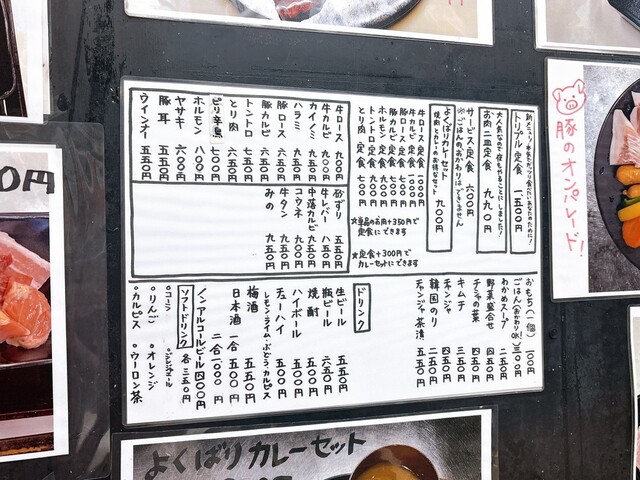 新メニュー!牛肉をガッツリ食べたいあなたのために!
トリプル定食 一、五〇〇円
大人気なので夜もやることにしました!
お肉二皿定食 九九〇円
サービス定食 六〇〇円
※ごはんのおかわりはできません
よくばりカレーセット 九〇〇円
焼肉とカレーのお得なセット
牛ロース定食 一〇〇〇円
牛カルビ定食 一〇〇〇円
豚ロース定食 九〇〇円
豚カルビ定食 九〇〇円
ホルモン定食
トントロ定食 九〇〇円
とり肉定食 七〇〇円
★単品のお肉+350円で
定食にできます
★定食+300円で
カレーセットにできます
牛ロース 九〇〇円
牛カルビ 九〇〇円
カイノミ
ハラミ
豚ロース 六五〇円
豚カルビ 六五〇円
トントロ 七五〇円
とり肉 六五〇円
ピリ辛鳥
ホルモン
ヤサキ 六〇〇円
豚耳 五五〇円
ウインナー 五五〇円
砂ずり 五五〇円
牛レバー 八五〇円
中落カルビ 九五〇円
コウネ 九五〇円
牛タン 九五〇円
みの 九五〇円
おもち(一個) 一〇〇円
ごはん(おかわりOK!) 三〇〇円
わかめスープ 二五〇円
野菜盛合せ 四五〇円
チシャの葉 四五〇円
キムチ 三五〇円
チャンジャ 四五〇円
韓国のり 二五〇円
チャンジャ茶漬 五五〇円
ドリンク
生ビール 五五〇円
瓶ビール 六五〇円
焼酎 五〇〇円
ハイボール 五五〇円
チューハイ 五五〇円
レモン・ライム・ぶどう・カルピス
梅酒 五五〇円
日本酒 一合 五〇〇円
二合 一〇〇〇円
ノンアルコールビール 四〇〇円
ソフトドリンク 各三五〇円
○コーラ ○ジンジャエール
○りんご ○オレンジ
○カルピス ○ウーロン茶
豚のオンパレード!
0円
よくばりカレーセット